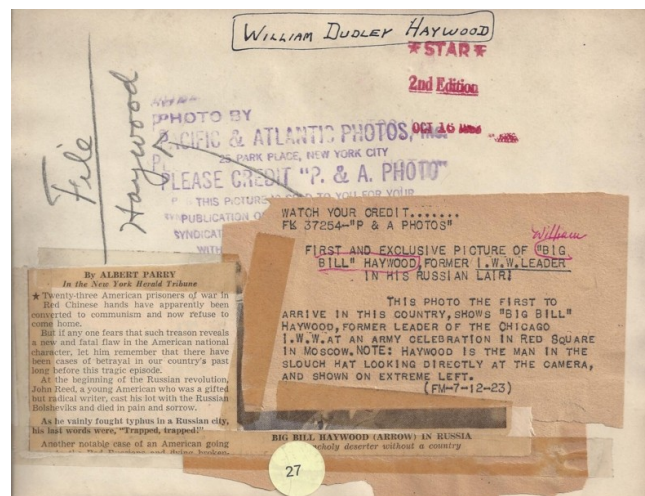 WILLIAM DUDLEY HAYWOOD
*STAR*
2nd Edition
OCT 16
File
Haywood
PHOTO BY
PACIFIC & ATLANTIC PHOTOS, Inc.
25 PARK PLACE, NEW YORK CITY
PLEASE CREDIT "P. & A. PHOTO"
THIS PICTURE IS TO YOU FOR YOUR
PUBLICATION
SYNDICAT
WITH
WATCH YOUR CREDIT.......
FK 37254--"P & A PHOTOS"
William
FIRST AND EXCLUSIVE PICTURE OF "BIG
BILL" HAYWOOD, FORMER I.W.W. LEADER
IN HIS RUSSIAN LAIR!
THIS PHOTO THE FIRST TO
ARRIVE IN THIS COUNTRY, SHOWS "BIG BILL"
HAYWOOD, FORMER LEADER OF THE CHICAGO
I.W.W. AT AN ARMY CELEBRATION IN RED SQUARE
IN MOSCOW. NOTE: HAYWOOD IS THE MAN IN THE
SLOUCH HAT LOOKING DIRECTLY AT THE CAMERA,
AND SHOWN ON EXTREME LEFT.
(FM-7-12-23)
By ALBERT PARRY
In the New York Herald Tribune
★ Twenty-three American prisoners of war in
Red Chinese hands have apparently been
converted to communism and now refuse to
come home.
But if any one fears that such treason reveals
a new and fatal flaw in the American national
character, let him remember that there have
been cases of betrayal in our country's past
long before this tragic episode.
At the beginning of the Russian revolution,
John Reed, a young American who was a gifted
but radical writer, cast his lot with the Russian
Bolsheviks and died in pain and sorrow.
As he vainly fought typhus in a Russian city,
his last words were, "Trapped, trapped!"
Another notable case of an American going
BIG BILL HAYWOOD (ARROW) IN RUSSIA
choly deserter without a country
27